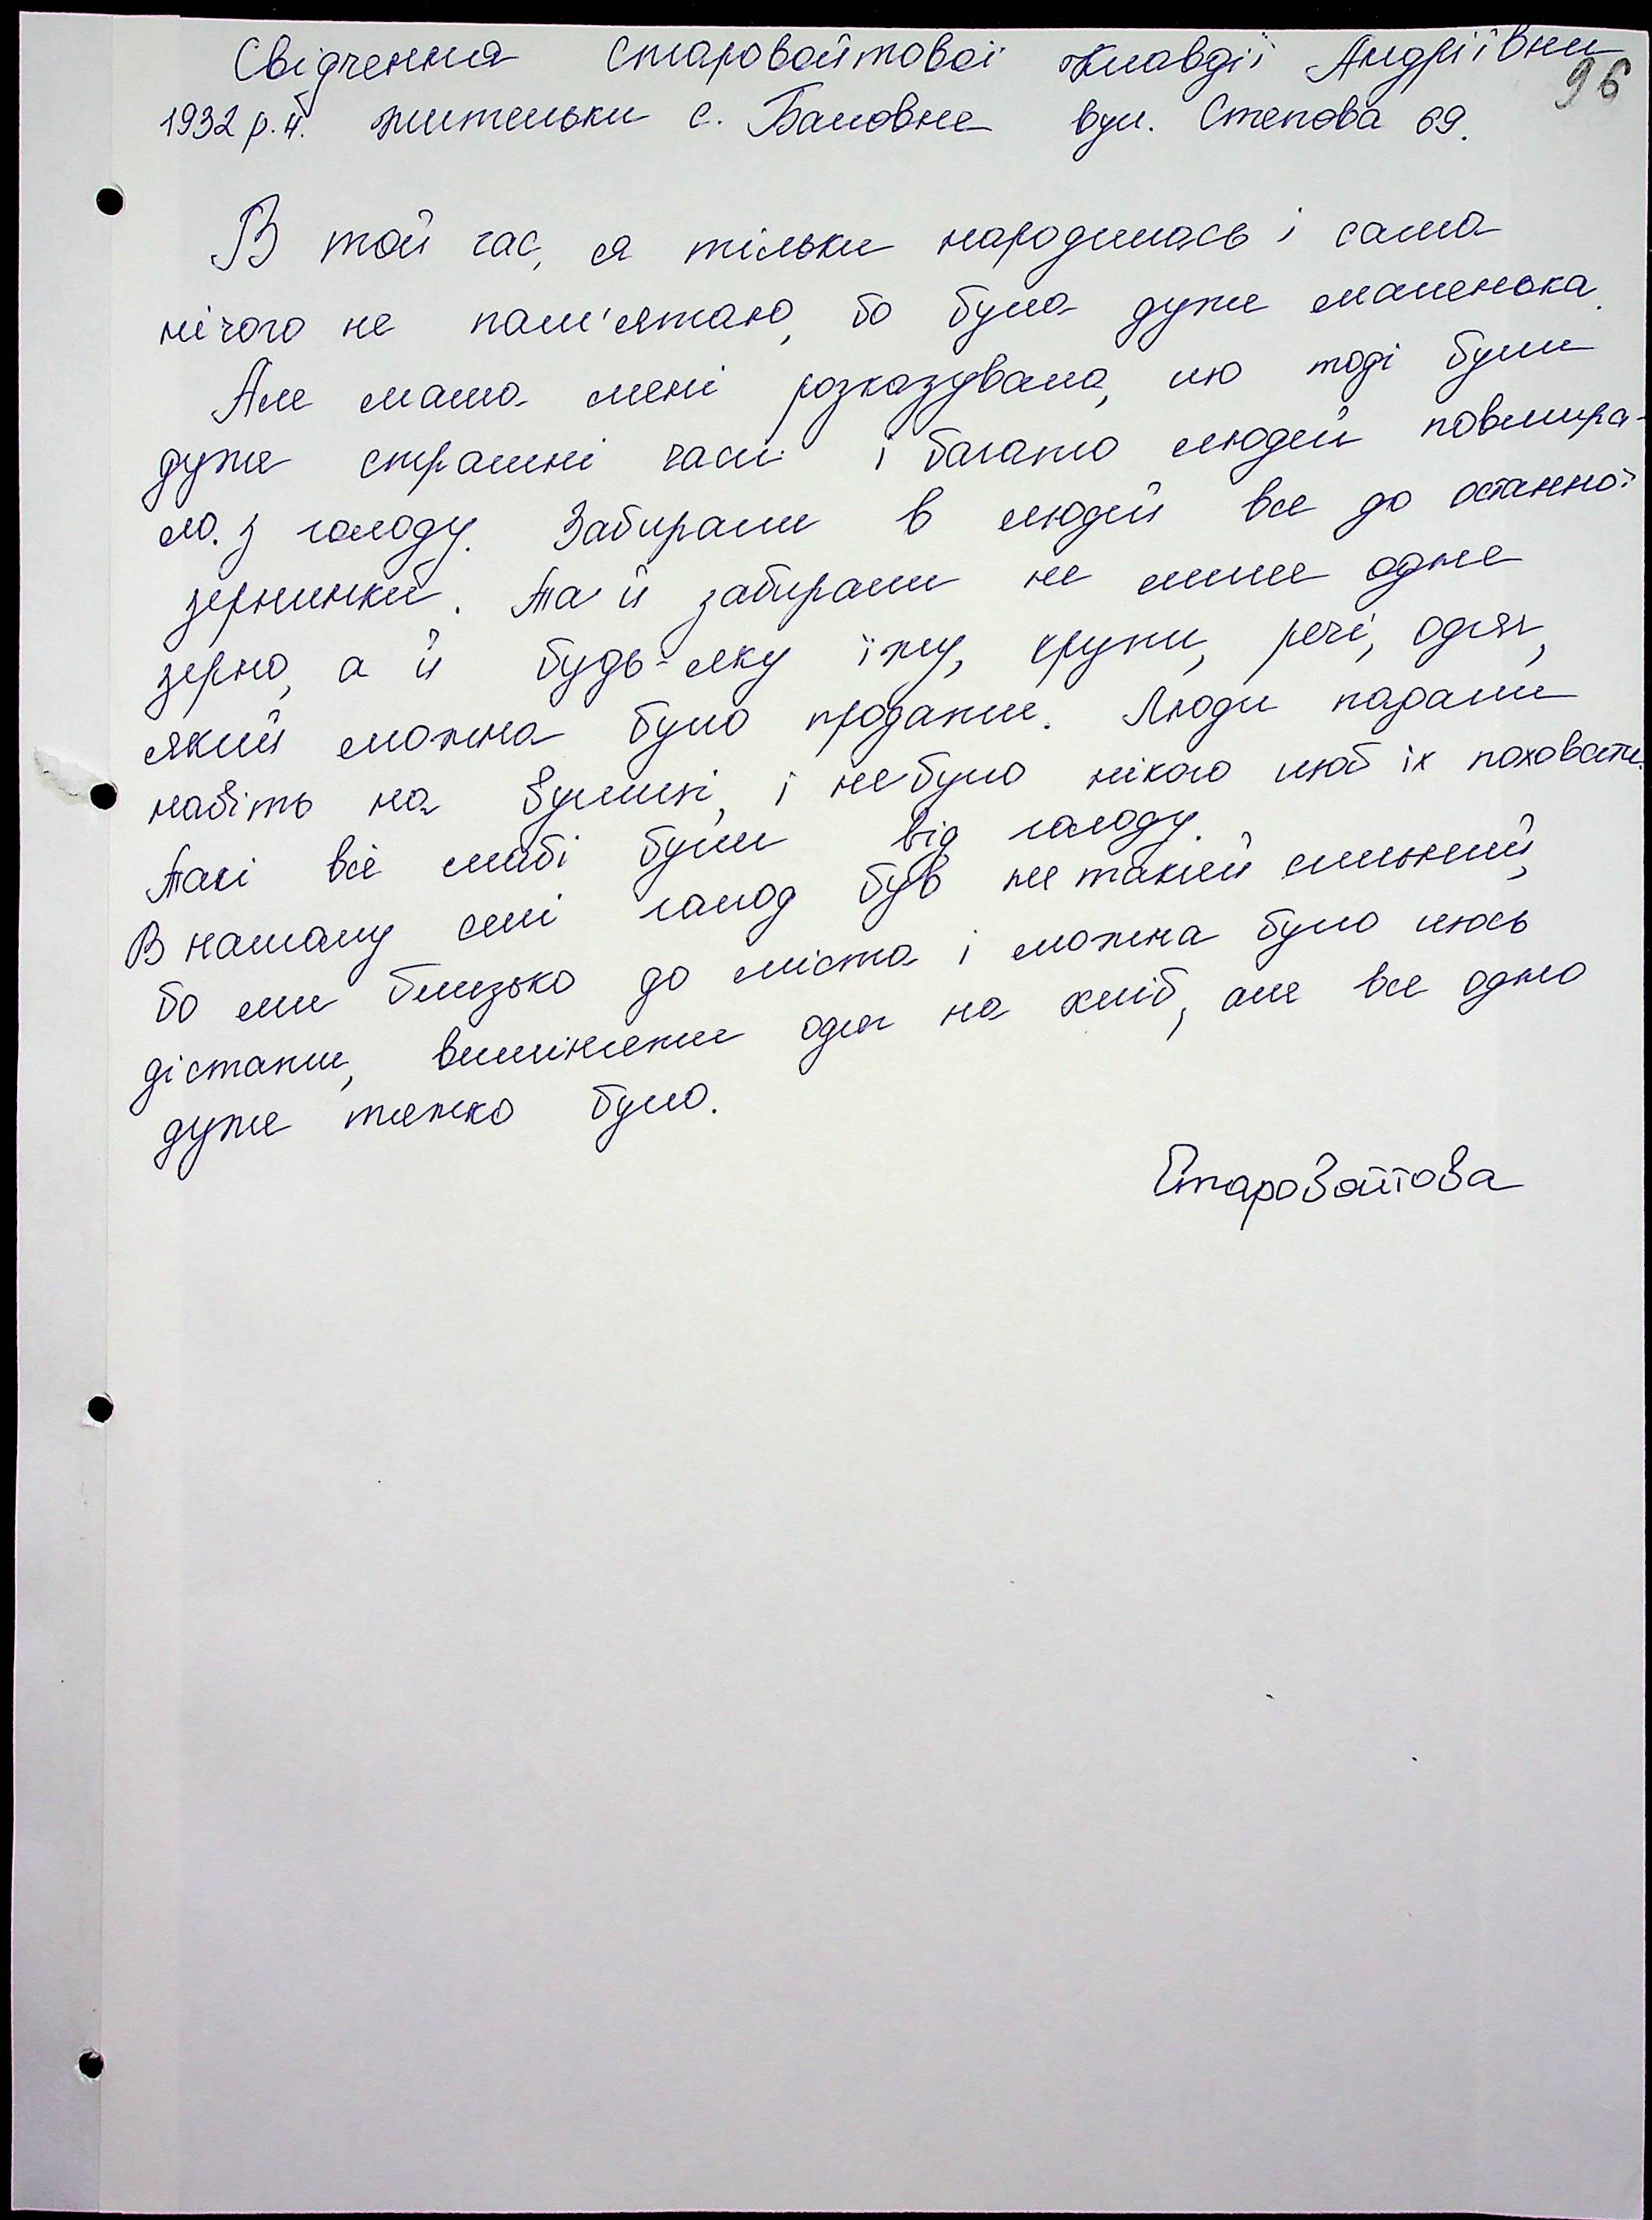 Свідчення Старовойтової Клавдії Андріївни
96
1932 р.н. жительки с. Баловне вул. Степова 69.
В той час, я тільки народилась і сама
нічого не пам'ятаю, бо була дуже маленька.
Але мама мені розказувала, що тоді були
дуже страшні часи і багато людей повмира-
ло. з голоду. Забирали в людей все до останної
зернинки. Та й забирали не лише одне
зерно, а й будь-яку їжу, крупи, речі, одяг,
який можна було продати. Люди падали
навіть на вулиці, і не було нікого щоб їх поховати.
Такі всі слабі були від голоду.
В нашому селі голод був не такий сильний,
бо ми близько до міста і можна було щось
дістати, виміняти одяг на хліб, але все одно
дуже тяжко було.
Старовойтова